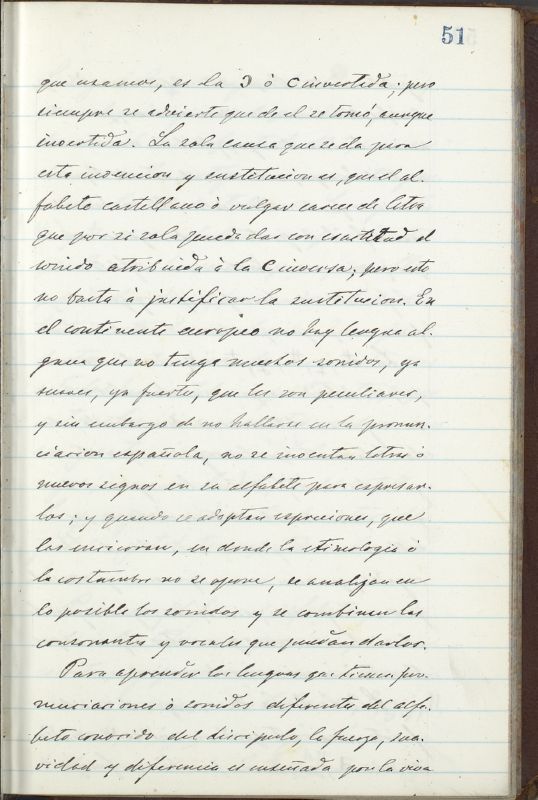 51
que usamos, es la Ɔ ó C invertida; pero
siempre se advierte que de el se tomó, aunque
invertida. La sola causa que se da para
esta invencion y sustituciones, que el al-
fabeto castellano ó vulgar carece de letra
que por si sola pueda dar con exactitud el
sonido atribuida á la C inversa; pero esto
no basta á justificar la sustitucion. En
el continente europeo no hay lengua al-
guna que no tenga muchos sonidos, ya
suaves, ya fuertes, que les son peculiares,
y sin embargo de no hallarse en la pronun-
ciacion española, no se inventan letras ó
nuevos signos en su alfabeto para espresar-
los; y quando se adoptan espresiones, que
las en donde la etimologia ó
la costumbre no se opone, se analizan en
lo posible los sonidos y se combinan las
consonantes y vocales que puedan darlos.
Para aprender las lenguas que tienen pro-
nunciaciones ó sonidos diferentes del alfa-
beto conocido del discipulo, la fuerza, sua-
vidad y diferencia es enseñada por la viva